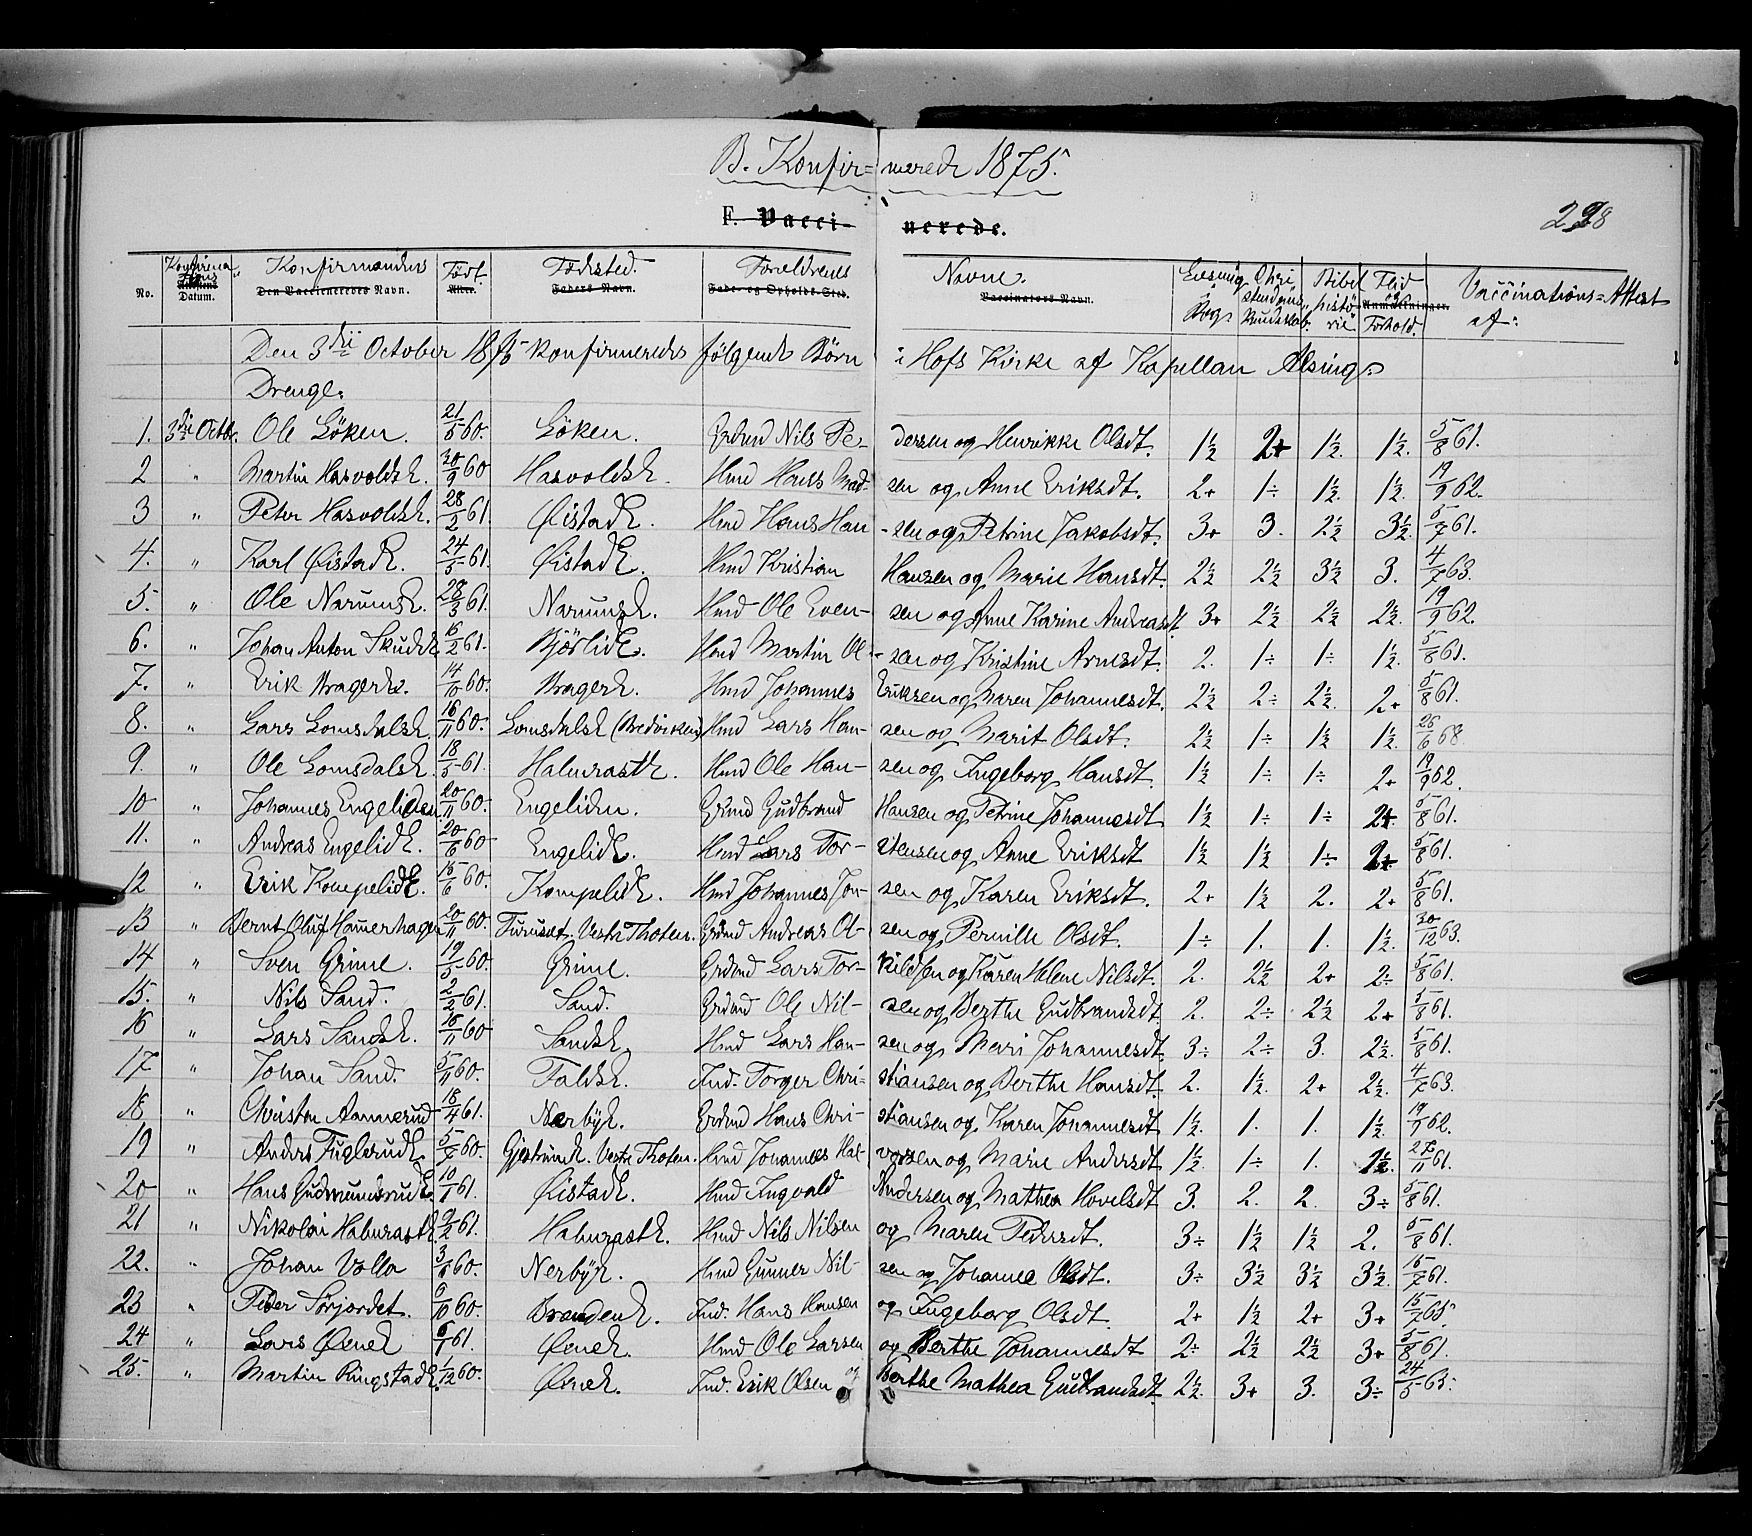 B. Konfir= merede 1875.
F. Vacci- nerede.
228
No. Konfirma tions Datum. Konfirmandens Navn. Født. Fødested. Forældrenes Navne. Chri stendoms Kundskab. Bibel histo rie Flid og Forhold Vaccinations=Attest af:
Den Vaccineredes Navn. Alter. Faders Navn. Føde- og Opholds-Sted. Vaccinators Navn. Anmærkninger.
Den 3die October 1875 konfirmeredes følgende Børn i Hofs Kirke af Kapellan Alsing:
Drenge:
1. 3die Octbr. Ole Løken. 21/5 60. Løken. Grdmd Nils Pe- dersen og Henrikke Olsdt. 1½ 2+ 1½. 1½. 5/8 61.
2 " Martin HasvoldsE. 30/9 60 HasvoldsE. Hmd Hans Mad- sen og Anne Eriksdt. 2+ 1÷ 1½ 1½. 19/9 62.
3 " Peter HasvoldsE. 28/2 61. ØistadE. Hmd Hans Han- sen og Petrine Jakobsdt. 3+ 3. 2½ 3½. 5/7 61.
4. " Karl ØistadE. 24/5 61. ØistadE. Hmd Kristian Hansen og Marie Hansdt. 2½ 2½ 3½ 3. 4/7 63.
5. " Ole NarumsE. 28/3 61. NarumsE. Hmd Ole Even- sen og Anne Karine Andreasdt. 3+ 2½ 2½ 2½. 19/9 62.
6. " Johan Anton SkudsE 16/2 61. BjørlidE. Hmd Martin Ol- sen og Kristine Arnesdt. 2. 1÷ 1÷ 1½. 5/8 61.
7. " Erik BragerE. 14/10 60. BragerE. Hmd Johannes Eriksen og Maren Johannesdt. 2½ 2÷ 2½. 2+ 5/8 61.
8. " Lars LomsdalsE. 16/11 60. LomsdalsE (Bredvikens) Hmd Lars Han- sen og Marit Olsdt. 2½ 1÷ 1½ 1½. 26/6 68
9. " Ole LomsdalsE. 18/5 61. HalmrastE. Hmd Ole Han- sen og Ingeborg Hansdt. 1½ 1÷ 1÷ 2+ 19/9 62.
10 " Johannes Engeliden. 20/11 60. Engeliden. Grdmd Gudbrand Hansen og Petrine Johannesdt 1½ 1÷ 1÷ 2+. 5/8 61.
11. " Andreas EngelidE. 20/6 60 EngelidE. Hmd Lars Tor- stensen og Anne Eriksdt 1½ 1½ 1÷ 2+ 5/8 61.
12 " Erik KompelidE. 15/6 60. KompelidE. Hmd Johannes Jon- sen og Karen Eriksdt. 2+ 1½ 2. 2+ 5/8 61.
13 " Bernt Oluf Hamerhagen 20/11 60. Furuset. Vestre Thoten. Grdmd Andreas Ol- sen og Pernille Olsdt. 1÷ 1. 1. 1½. 30/12 63.
14 " Sven Grime. 19/5 60. Grime. Grdmd Lars Tor- kildsen og Karen Helene Nilsdt. 2. 2½ 2+ 2÷ 5/8 61.
15. " Nils Sand. 2/2 61. Sand. Grdmd Ole Nil- sen og Berthe Gudbrandsdt. 2. 2÷ 2½ 2+ 5/8 61.
16 " Lars SandsE. 16/11 60 SandsE. Hmd Lars Han- sen og Mari Johannesdt. 3÷ 2÷ 3. 2½. 5/8 61.
17 " Johan Sand. 5/11 60. FaldsE. Ind. Torger Chri- stiansen og Berthe Hansdt. 2. 1½. 2+ 2½. 4/7 63.
18 " Christen Aannerud 18/4 61. NærbyE. Grdmd Hans Chri- stiansen og Karen Johannesdt 1½. 1. 1. 1½.
19 " Anders FuglerudE. Vestre Thoten. Hmd Johannes Hal- vorsen og Marie Andersdt 1½. 1÷ 1. 1½. 27/11 61.
20 " Hans GudmundsrudE. ØistadE. Hmd Ingvald Andersen og Mathea Hovelsdt 3. 2. 2. 3÷ 5/8 61.
21 " Nikolai HalmrastE. 9/2 61. HalmrastE. Hmd Nils Nilsen og Maren Pedersdt. 3÷ 1½ 1½ 2. 5/8 61.
22. " Johan Volla NerbyE. Hmd Gunner Nil- sen og Johanne Olsdt. 3÷ 3½ 3½ 3½. 15/7 61.
23 " Peder Sørjordet. 9/10 60. BrandenE. Ind. Hans Hansen og Ingeborg Olsdt. 2+ 1½ 2+ 3+ 15/7 65.
24 " Lars ØenE 6/1 61. ØenE. Hmd Ole Larsen og Berthe Johannesdt 2÷ 2½ 2½ 3+ 5/8 61.
25. " Martin RingstadE. 1/12 60. ØenE. Ind. Erik Olsen og Berthe Mathea Gudbrandsdt 2½ 3+ 3. 3÷ 24/5 63.